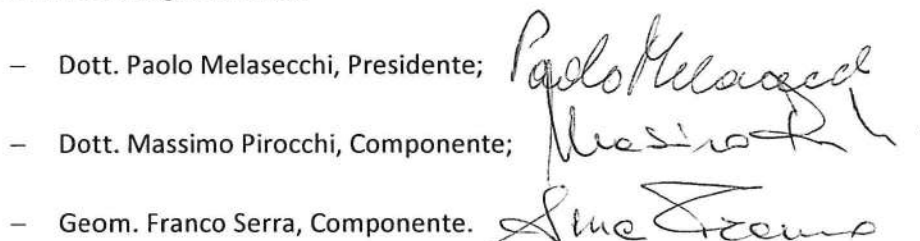 – Dott. Paolo Melasecchi, Presidente; Paolo Melasecchi
– Dott. Massimo Pirocchi, Componente; Massimo
– Geom. Franco Serra, Componente. Serra Franco